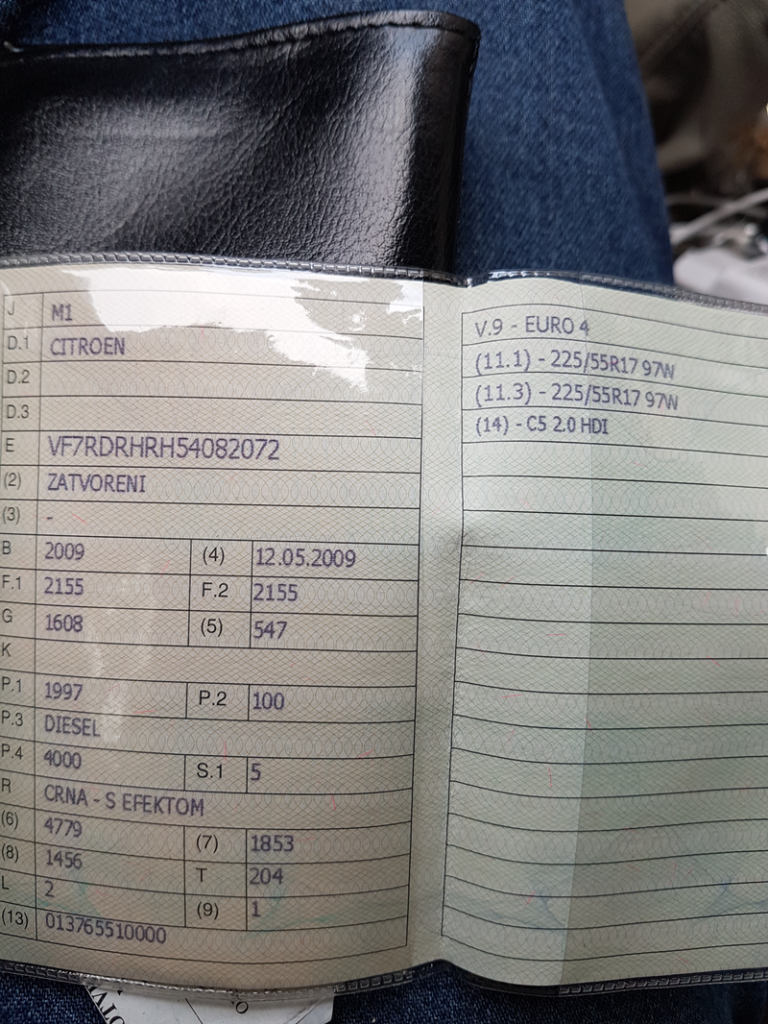 J M1
D.1 CITROEN
D.2
D.3
E VF7RDRHRH54082072
(2) ZATVORENI
(3) -
B 2009 (4) 12.05.2009
F.1 2155 F.2 2155
G 1608 (5) 547
K
P.1 1997 P.2 100
P.3 DIESEL
P.4 4000 S.1 5
R CRNA - S EFEKTOM
(6) 4779 (7) 1853
(8) 1456 T 204
L 2 (9) 1
(13) 013765510000
V.9 - EURO 4
(11.1) - 225/55R17 97W
(11.3) - 225/55R17 97W
(14) - C5 2.0 HDI